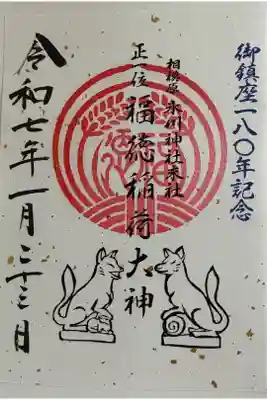 御鎮座一八〇年記念
相模原 氷川神社末社
正一位 福徳稲荷大神
令和七年一月二十三日